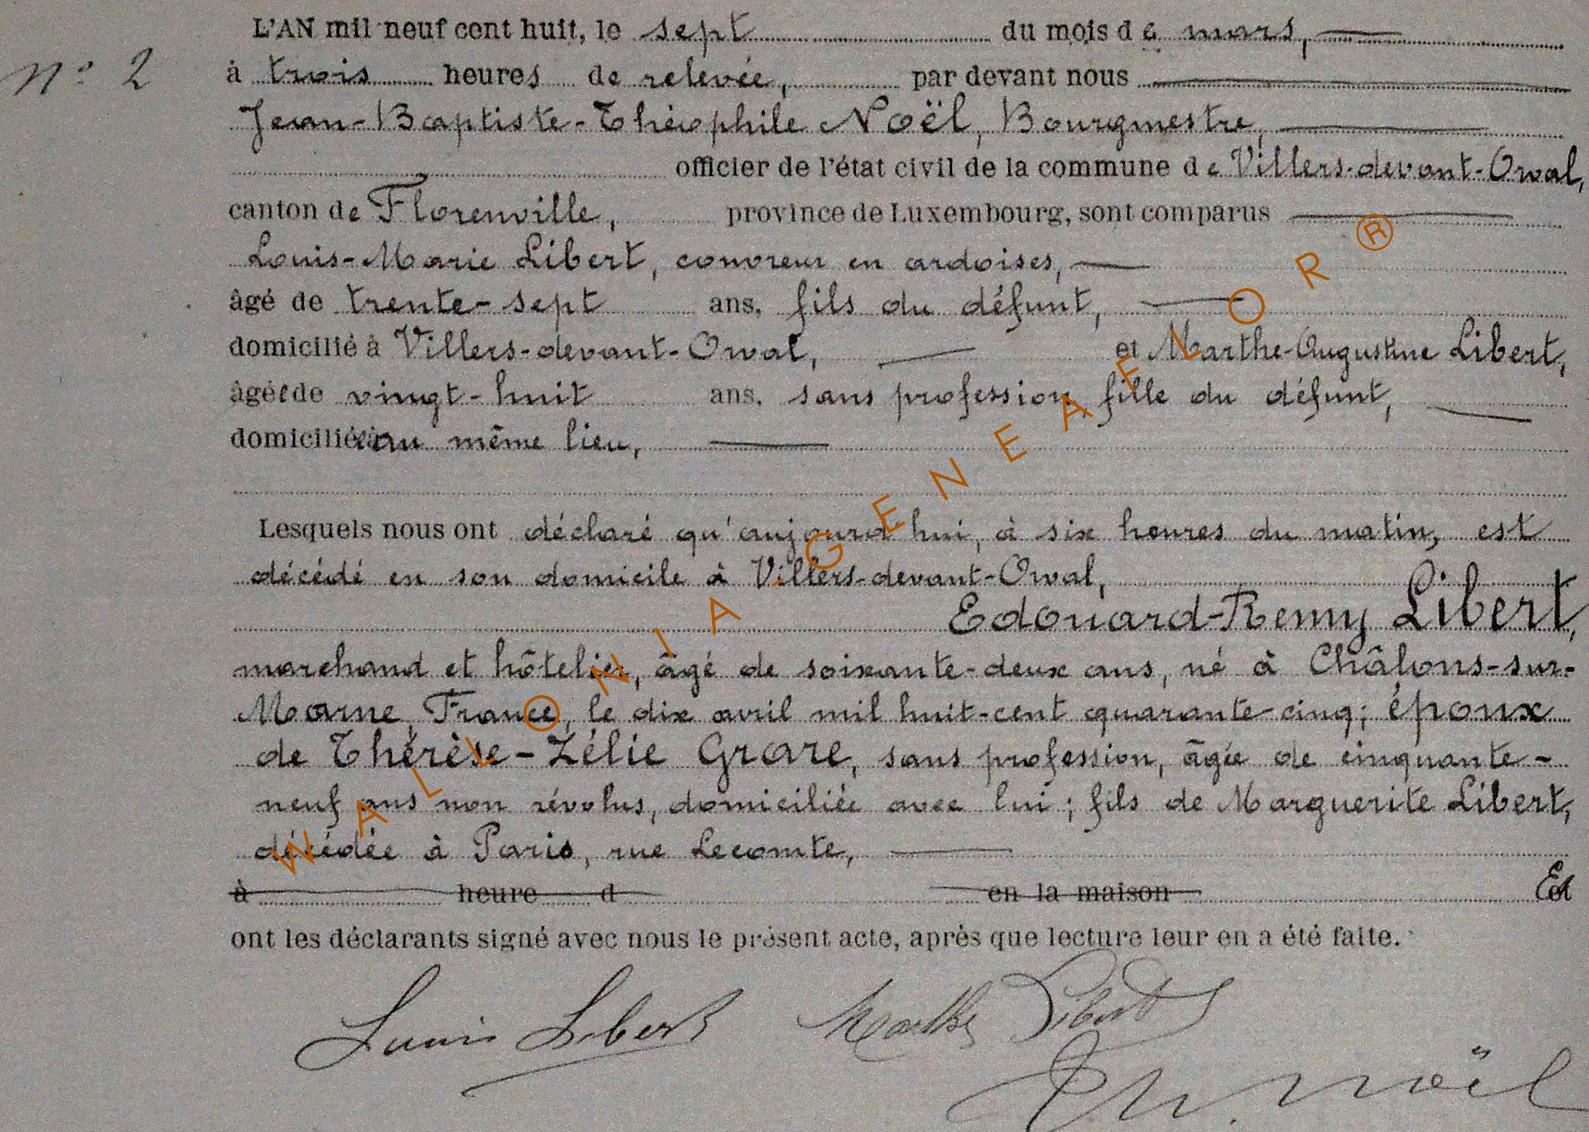 L'AN mil neuf cent huit, le sept du mois de mars,
N° 2
à trois heures de relevée, par devant nous
Jean-Baptiste-Théophile Noël, Bourgmestre,
officier de l'état civil de la commune de Villers-devant-Orval,
canton de Florenville, province de Luxembourg, sont comparus
Louis-Marie Libert, couvreur en ardoises,
âgé de trente-sept ans, fils du défunt,
domicilié à Villers-devant-Orval, et Marthe-Augustine Libert,
âgée de vingt-huit ans, sans profession, fille du défunt,
domiciliée au même lieu,
Lesquels nous ont déclaré qu'aujourd'hui, à six heures du matin, est
décédé en son domicile à Villers-devant-Orval,
Edouard-Remy Libert,
marchand et hôtelier, âgé de soixante-deux ans, né à Châlons-sur-
Marne, France, le dix avril mil huit-cent quarante-cinq; époux
de Thérèse-Zélie Grare, sans profession, âgée de cinquante-
neuf ans non révolus, domiciliée avec lui; fils de Marguerite Libert,
décédée à Paris, rue Lecomte,
à heure d en la maison Et
ont les déclarants signé avec nous le présent acte, après que lecture leur en a été faite.
Louis Libert Marthe Libert
Th. Noël
WALLONIA-GENEAFLOR®